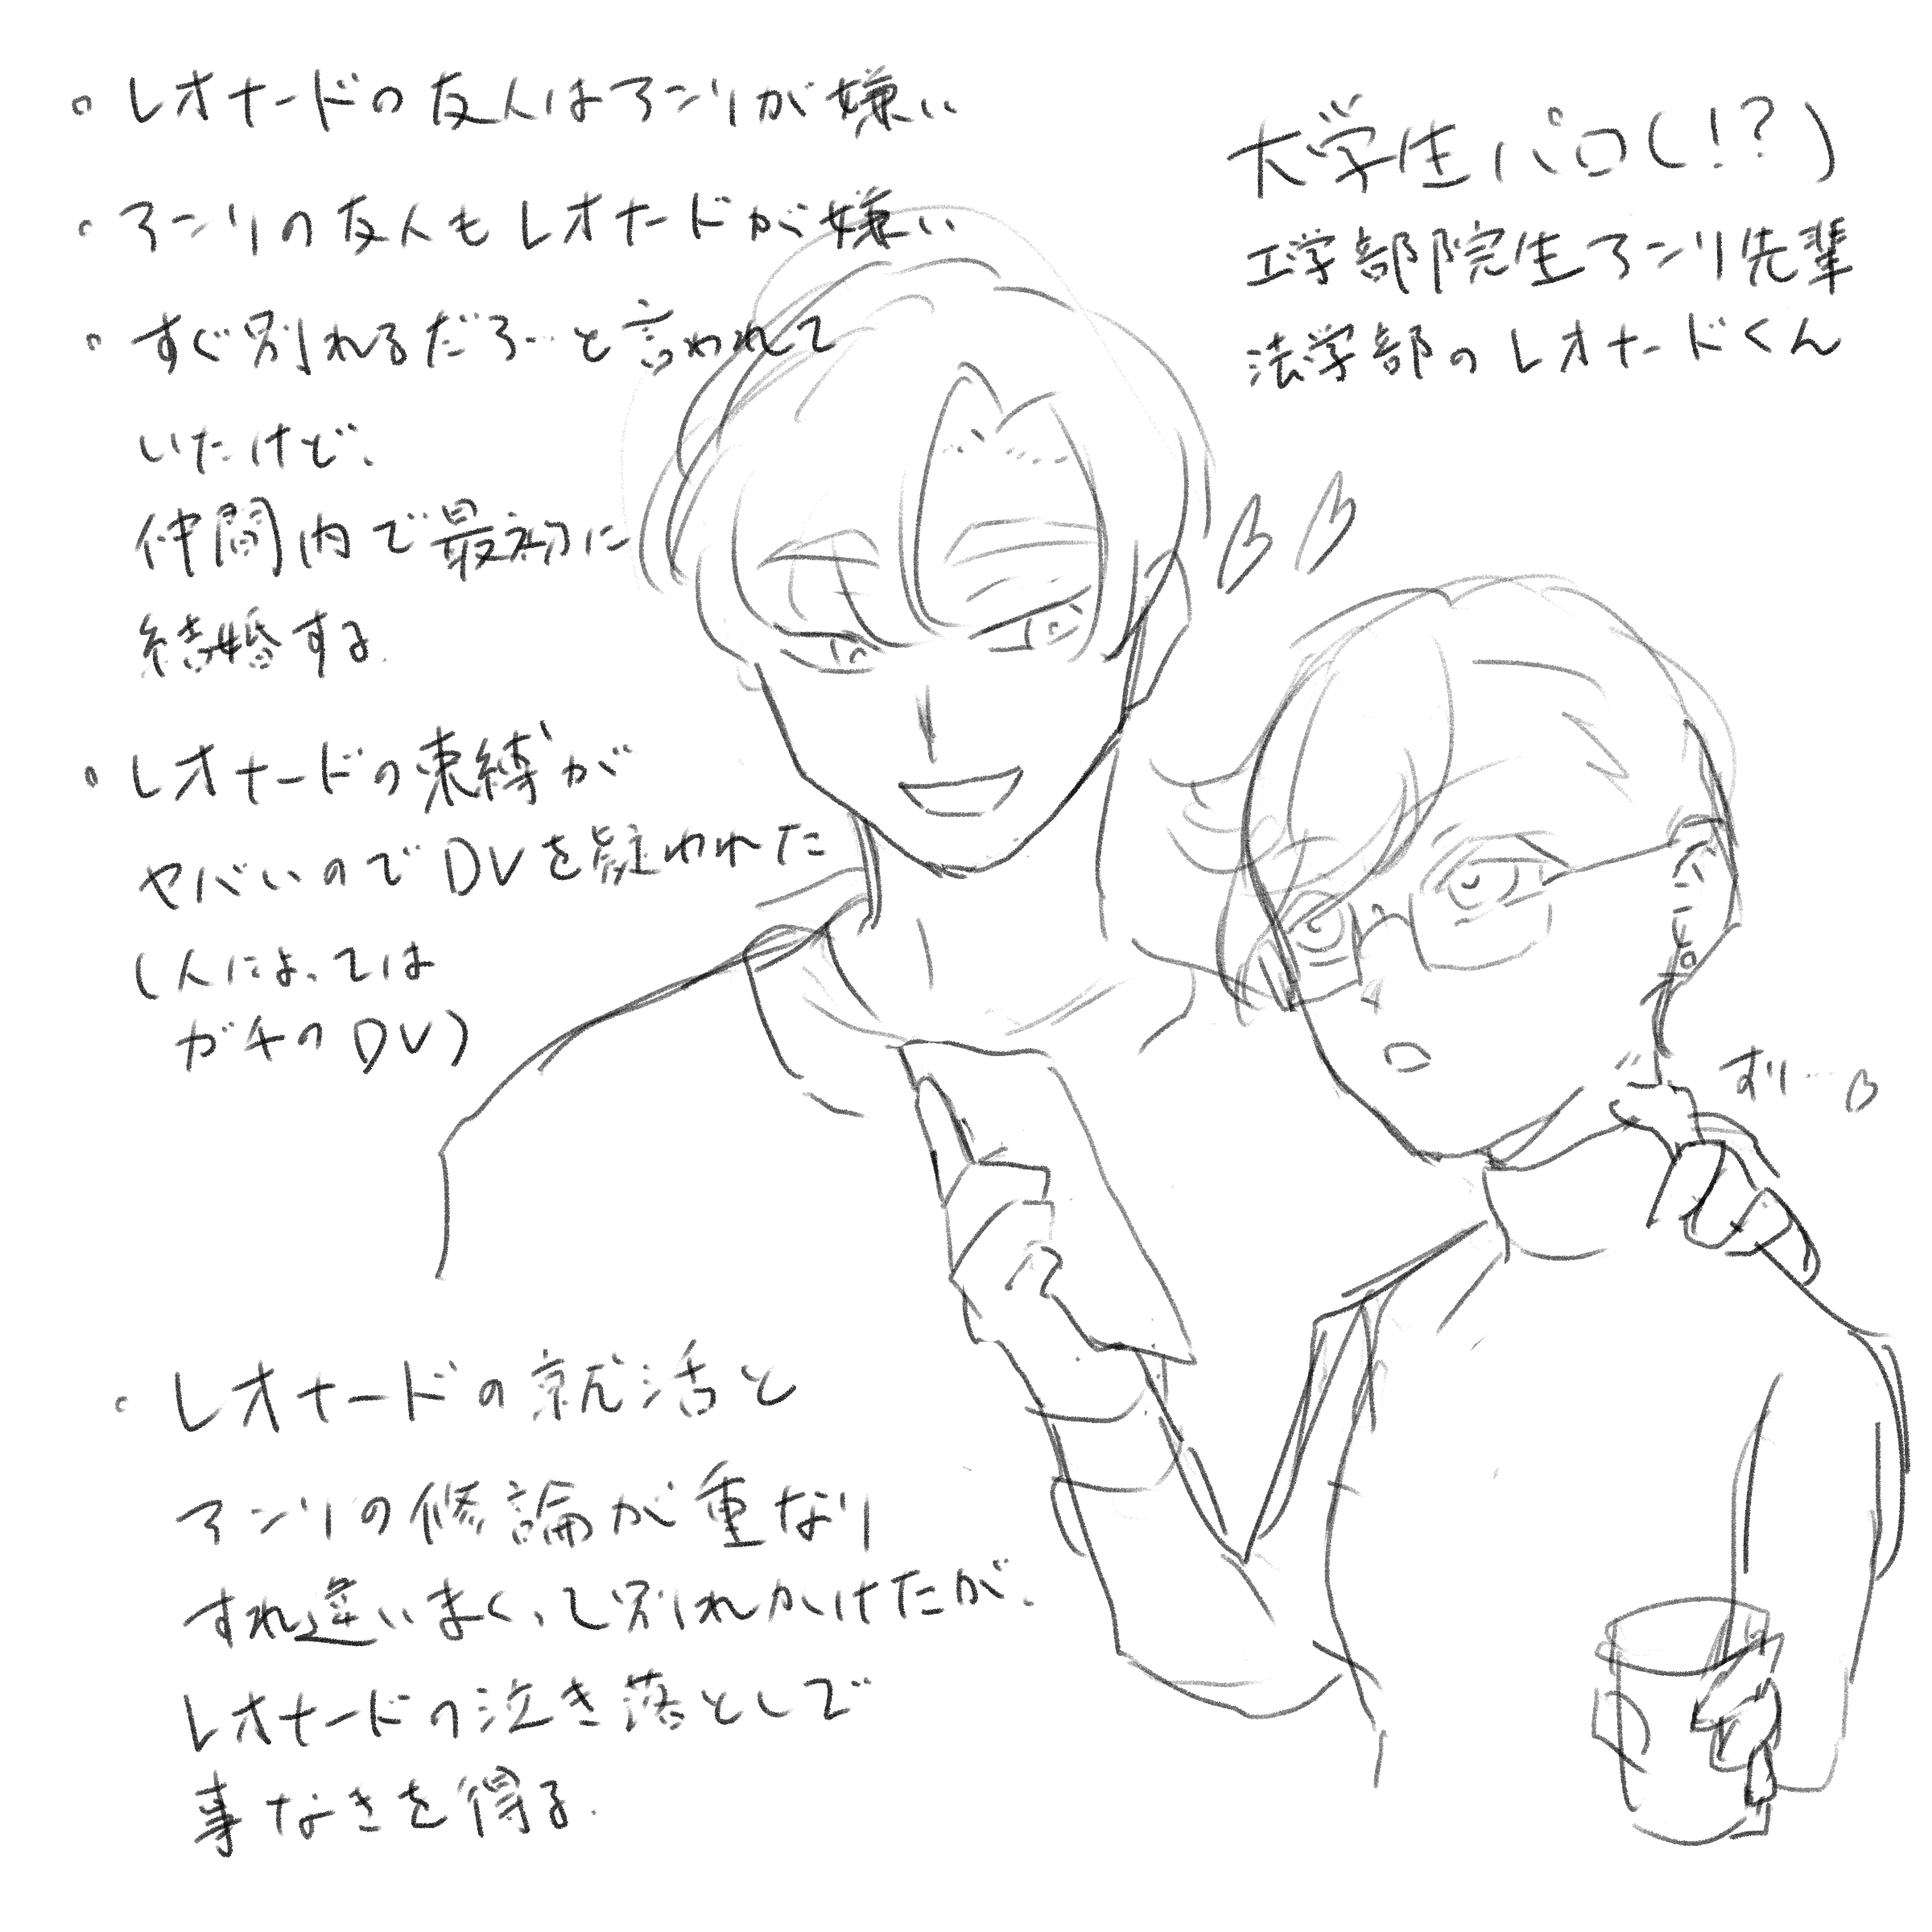 大学生パロ(!?)
工学部院生アンリ先輩
法学部のレオナードくん
。レオナードの友人はアンリが嫌い
。アンリの友人もレオナードが嫌い
。すぐ別れるだろ…と言われて
いたけど、
仲間内で最初に
結婚する.
。レオナードの束縛が
ヤバいのでDVを疑われた
(人によっては
ガチのDV)
。レオナードの就活と
アンリの修論が重なり
すれ違いまくって別れかけたが、
レオナードの泣き落としで
事なきを得る.
すり…♡